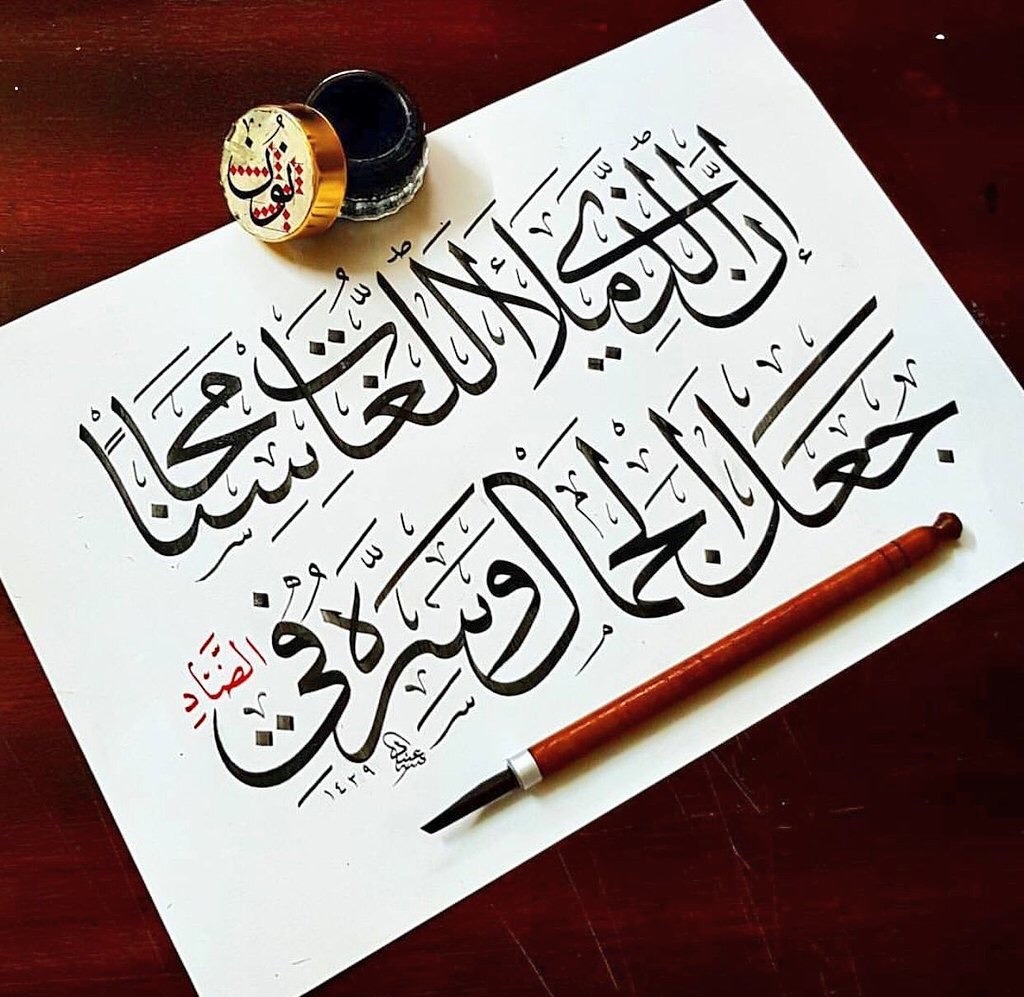 إِنَّ الَّذِي مَلَأَ اللُّغَاتِ مَحَاسِنًا
جَعَلَ الْجَمَالَ وَسِرَّهُ فِي الضَّادِ
١٤٣٩